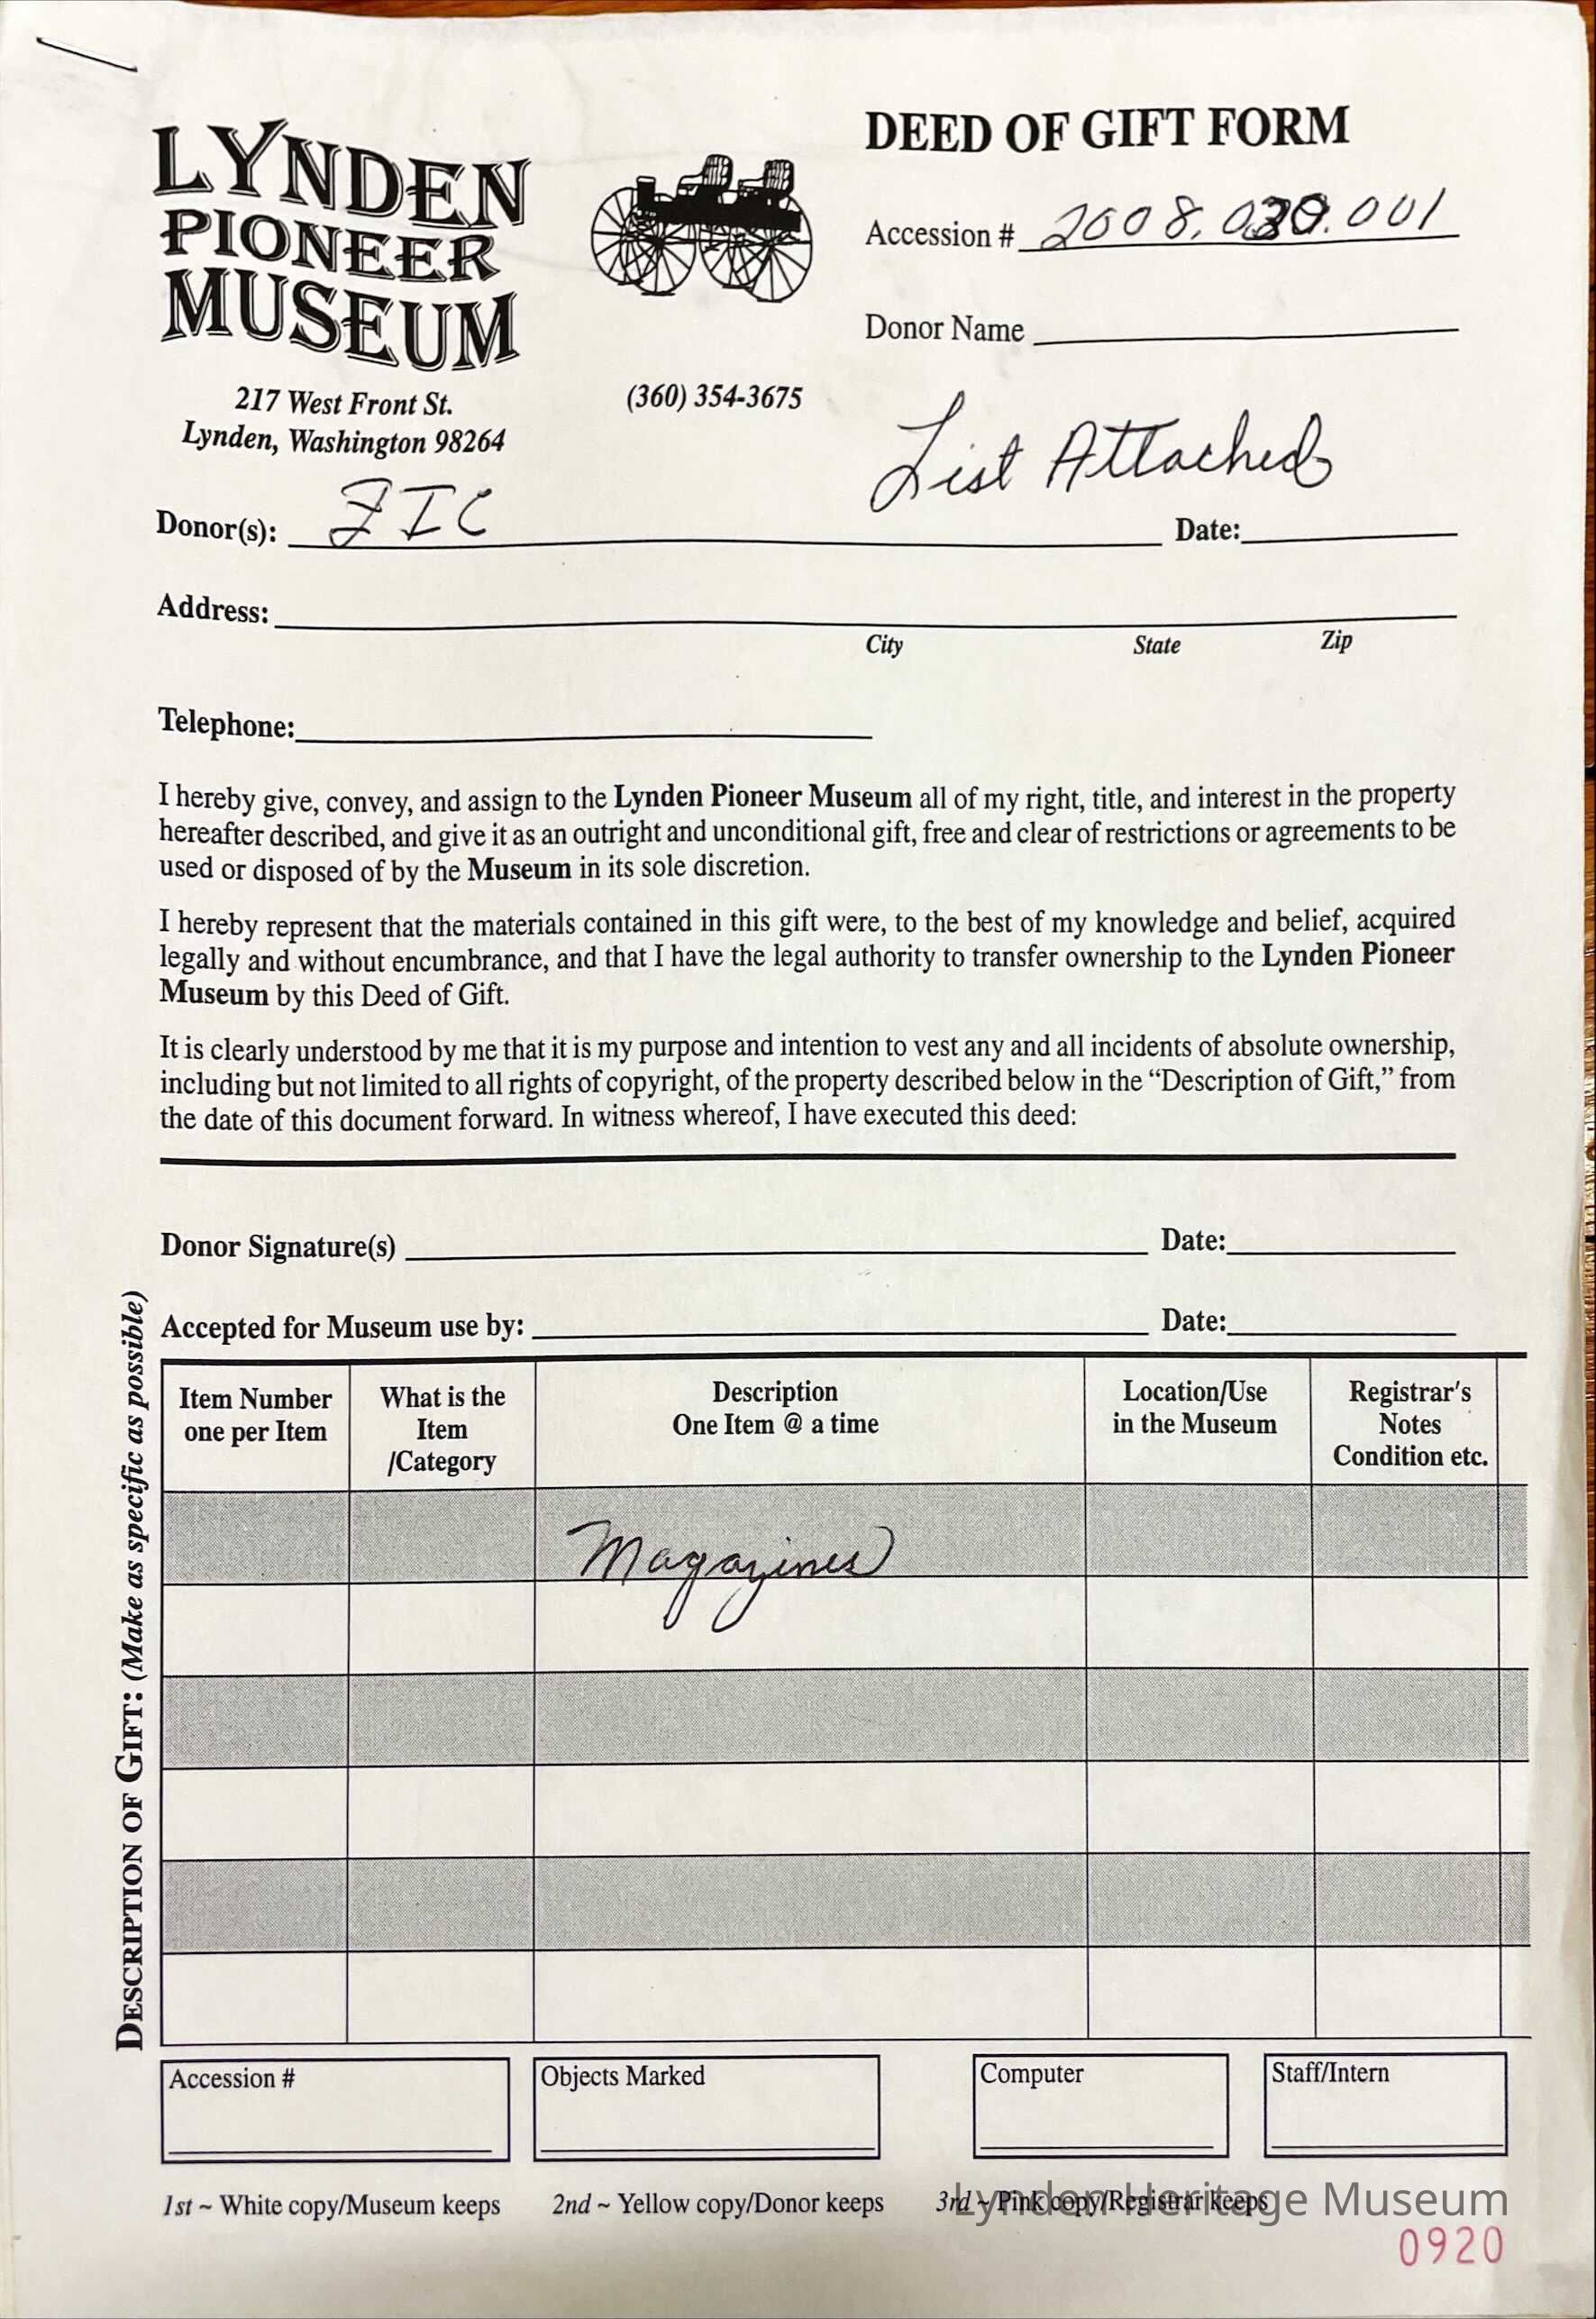 LYNDEN
PIONEER
MUSEUM
217 West Front St.
Lynden, Washington 98264
(360) 354-3675
DEED OF GIFT FORM
Accession # 2008.030.001
Donor Name
List Attached
Donor(s): FIC
Date:
Address:
City State Zip
Telephone:
I hereby give, convey, and assign to the Lynden Pioneer Museum all of my right, title, and interest in the property
hereafter described, and give it as an outright and unconditional gift, free and clear of restrictions or agreements to be
used or disposed of by the Museum in its sole discretion.
I hereby represent that the materials contained in this gift were, to the best of my knowledge and belief, acquired
legally and without encumbrance, and that I have the legal authority to transfer ownership to the Lynden Pioneer
Museum by this Deed of Gift.
It is clearly understood by me that it is my purpose and intention to vest any and all incidents of absolute ownership,
including but not limited to all rights of copyright, of the property described below in the “Description of Gift,” from
the date of this document forward. In witness whereof, I have executed this deed:
Donor Signature(s) Date:
Accepted for Museum use by: Date:
DESCRIPTION OF GIFT: (Make as specific as possible)
Item Number
one per Item
What is the
Item
/Category
Description
One Item @ a time
Location/Use
in the Museum
Registrar's
Notes
Condition etc.
Magazines
Accession #
Objects Marked
Computer
Staff/Intern
1st ~ White copy/Museum keeps 2nd ~ Yellow copy/Donor keeps 3rd ~ Pink copy/Registrar keeps
Lynden Heritage Museum
0920